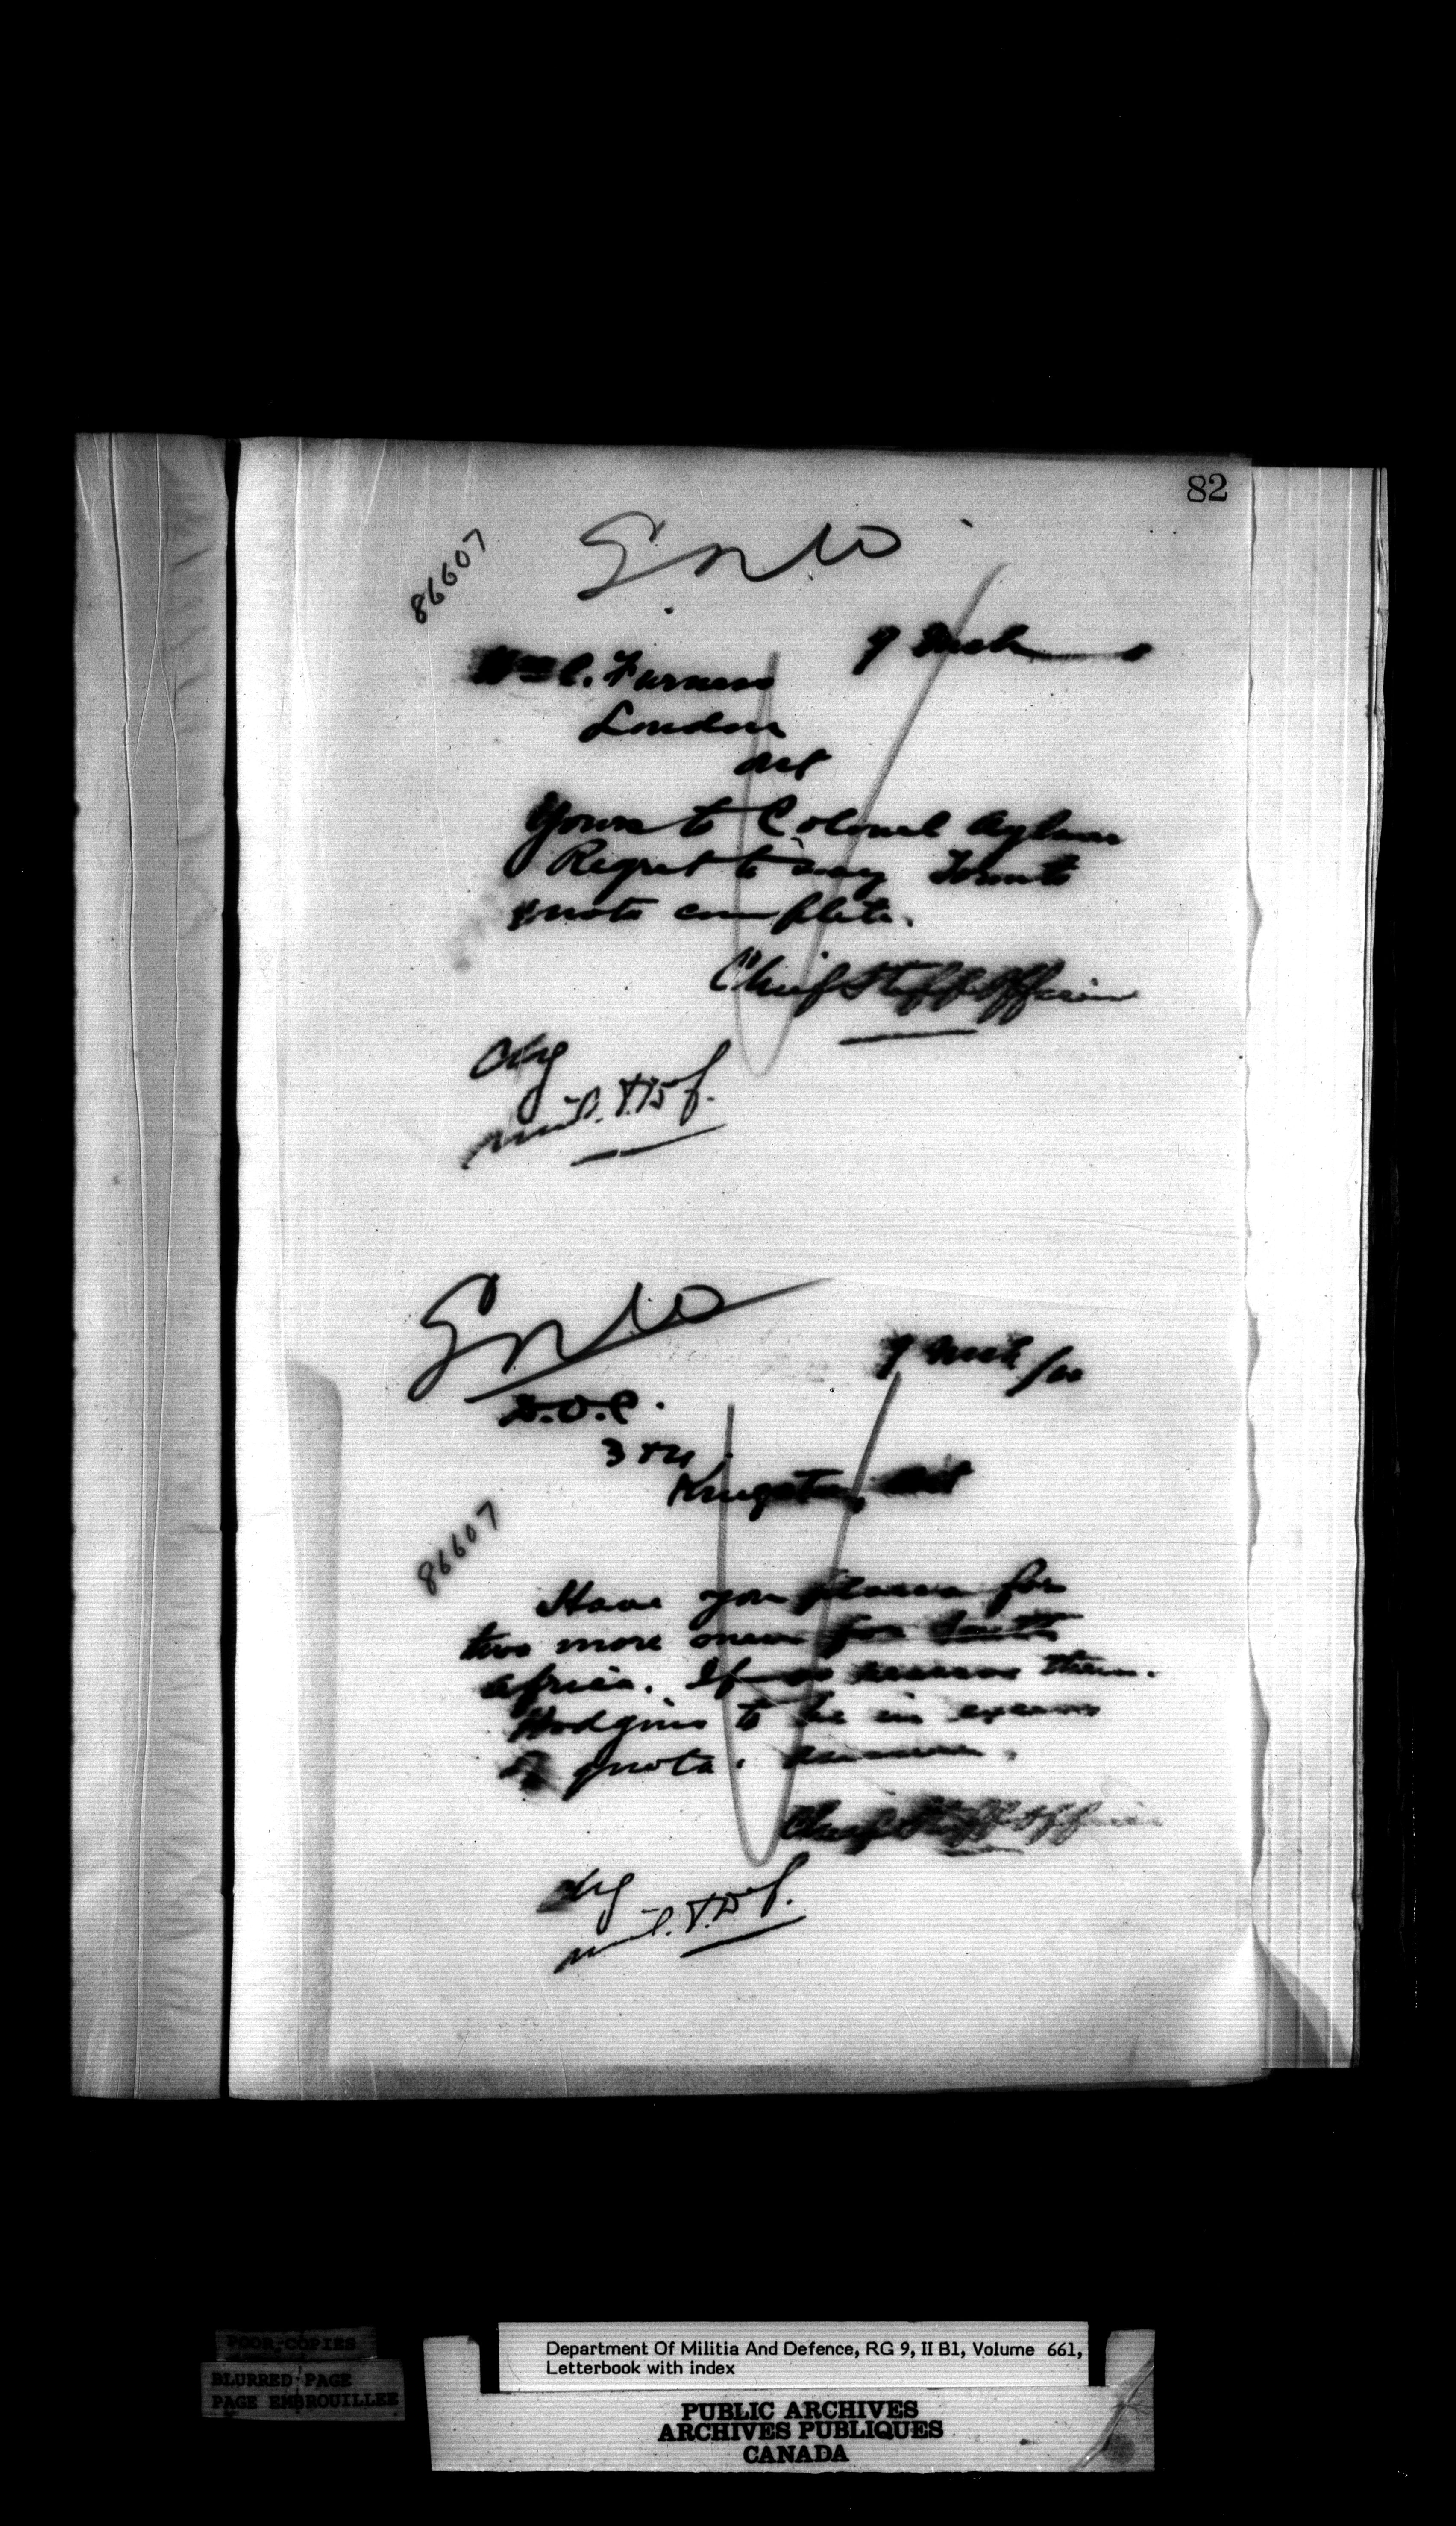 82
86607
9 Mch
Wm C. Furness
London
Ont
Yours to Colonel Aylmer
Regret to say Toronto
quota complete.
Chief Staff Officer
Chg
Mil. & Def.
9 Mch /00
D.O.C.
3 & 4
Kingston, Ont
86607
Have you places for
two more ones for South
Africa. If so reserve them.
Hodgins to be in excess
of quota. Answer.
Chief Staff Officer
Chg
Mil. & Def.
POOR COPIES
BLURRED PAGE
PAGE EMBROUILLEE
Department Of Militia And Defence, RG 9, II B1, Volume 661,
Letterbook with index
PUBLIC ARCHIVES
ARCHIVES PUBLIQUES
CANADA